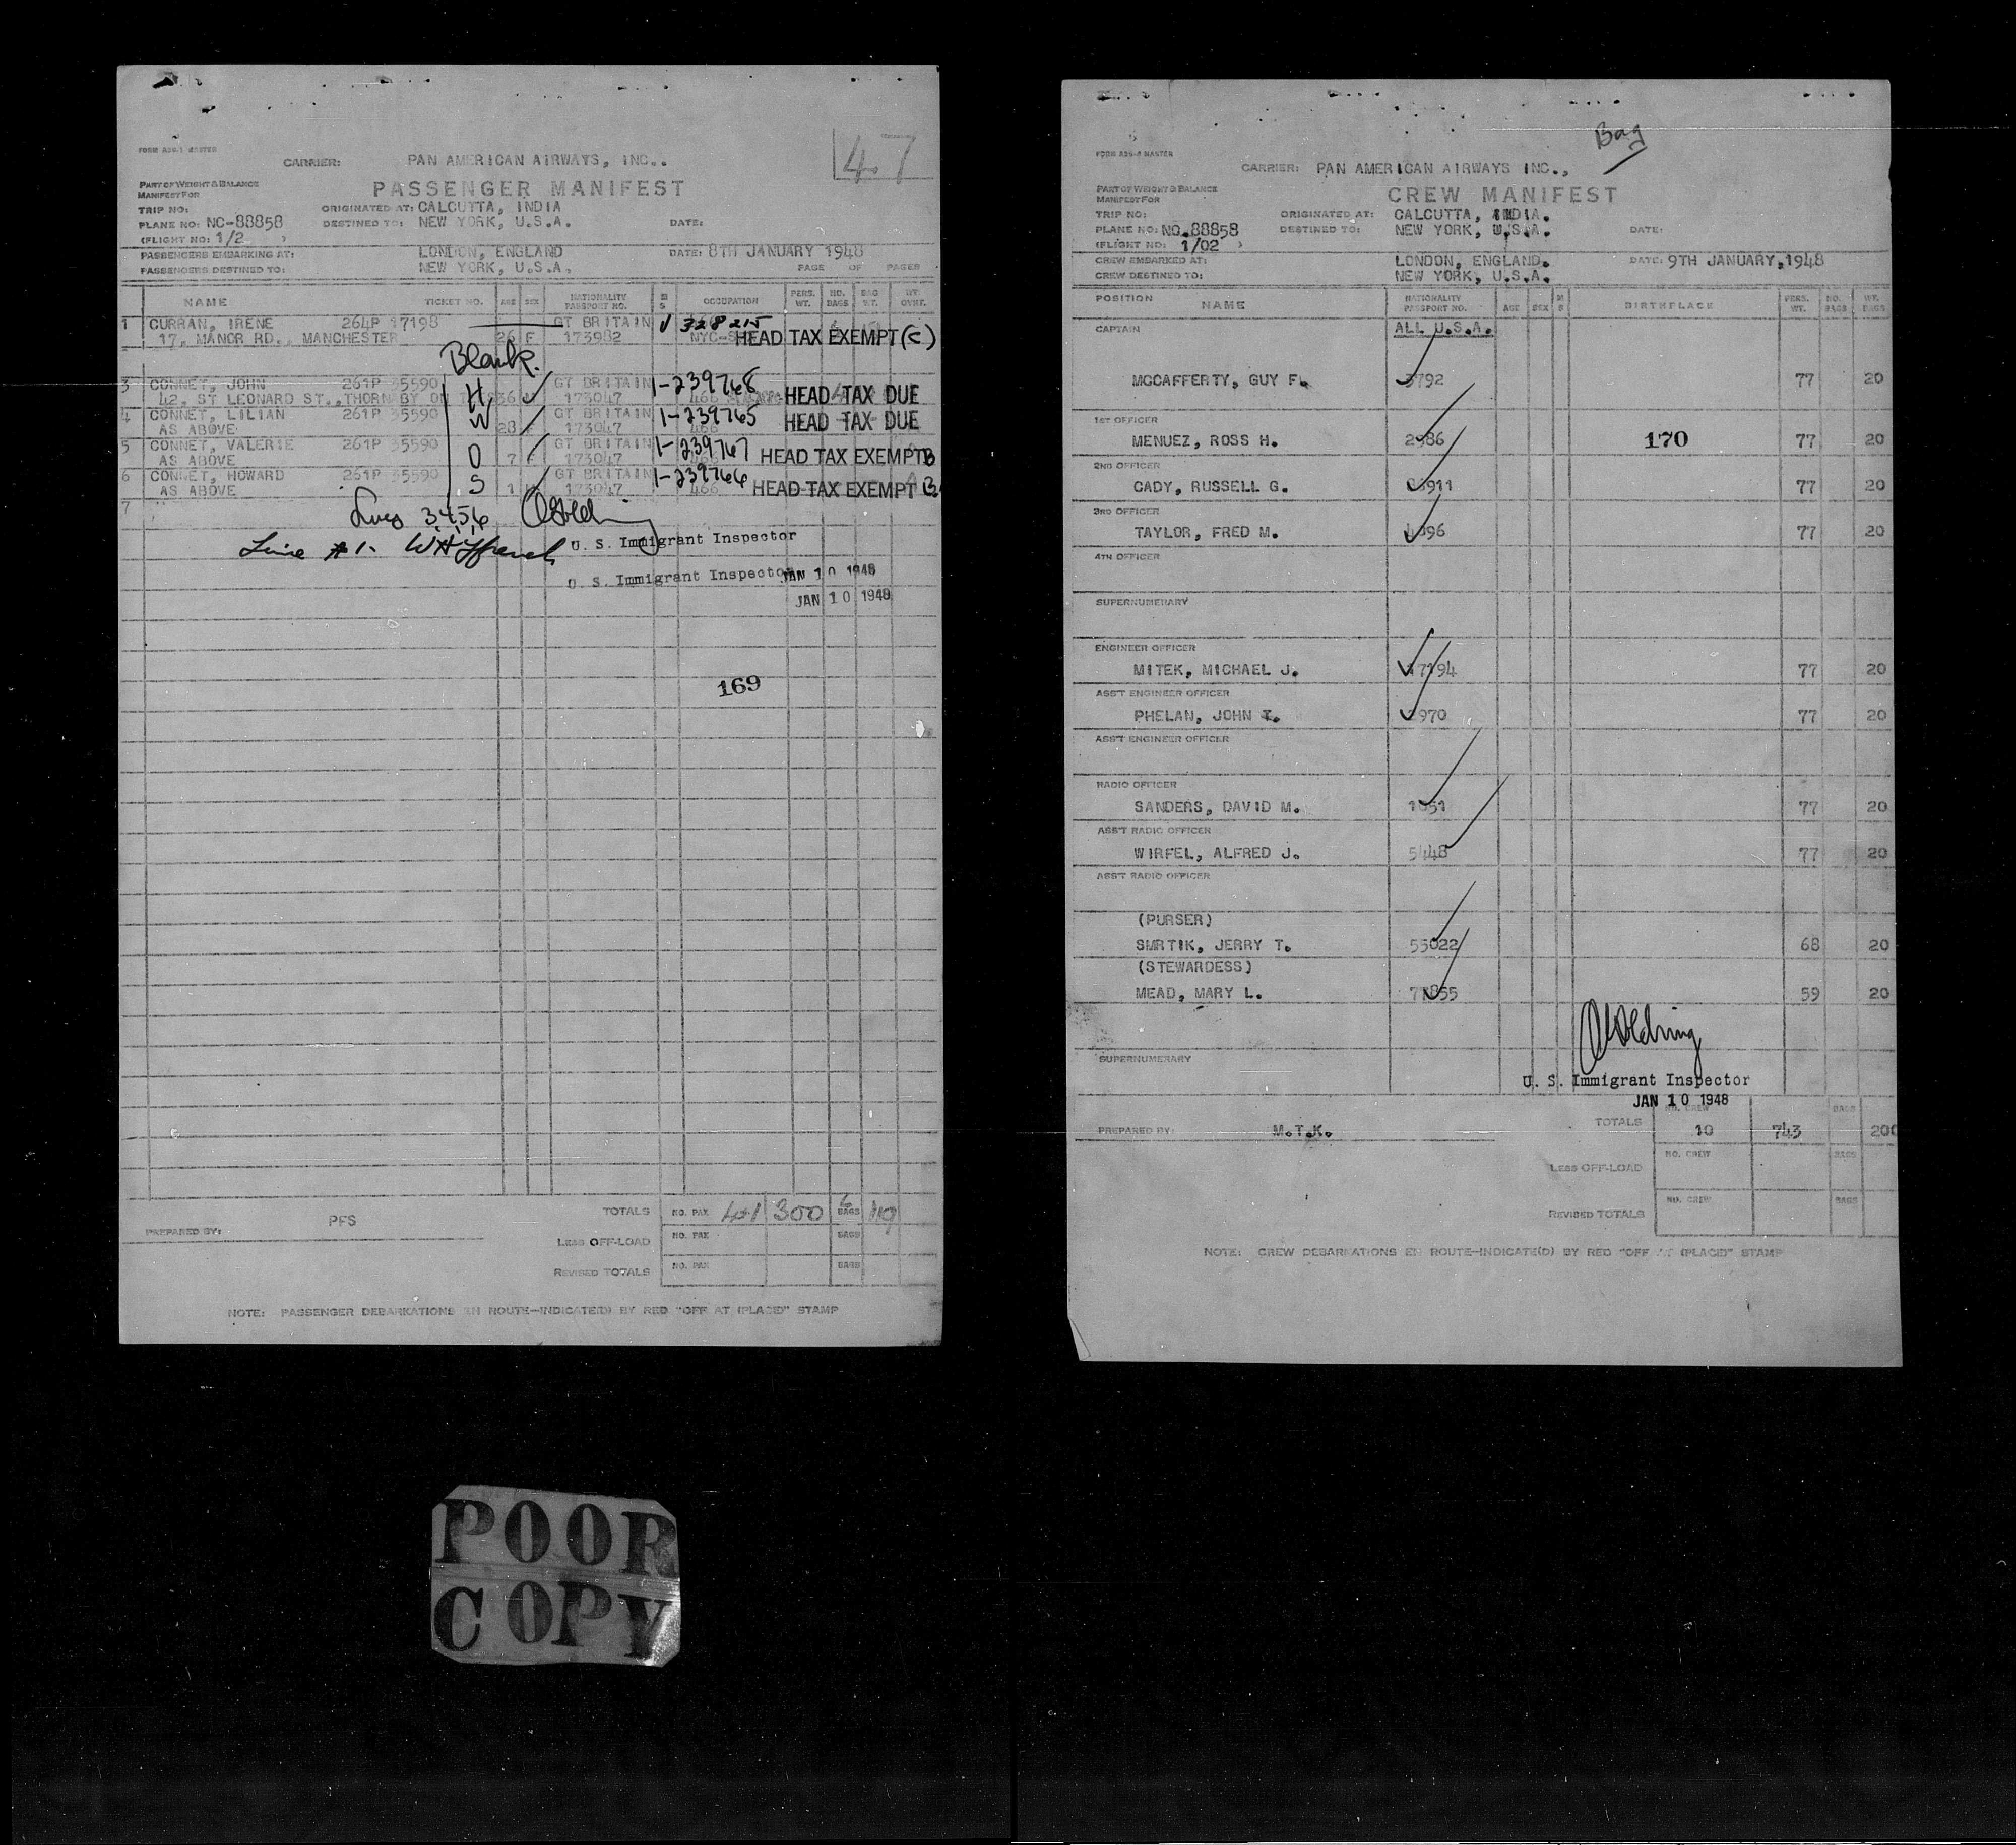 47
FORM A26-1 MASTER
CARRIER: PAN AMERICAN AIRWAYS, INC..
PART OF WEIGHT & BALANCE
MANIFEST FOR
PASSENGER MANIFEST
TRIP NO: ORIGINATED AT: CALCUTTA, INDIA
PLANE NO: NC-88858 DESTINED TO: NEW YORK, U.S.A. DATE:
(FLIGHT NO: 1/2 )
PASSENGERS EMBARKING AT: LONDON, ENGLAND DATE: 8TH JANUARY 1948
PASSENGERS DESTINED TO: NEW YORK, U.S.A. PAGE OF PAGES
NAME TICKET NO. AGE SEX NATIONALITY PASSPORT NO. M S OCCUPATION PERS. WT. NO. BAGS BAG WT. WT. OVHT.
1 CURRAN, IRENE 264P 17198 GT BRITAIN V 328215
17, MANOR RD., MANCHESTER 26 F 173982 HEAD TAX EXEMPT (C)
Blank.
3 CONNET, JOHN 261P 35590 H GT BRITAIN 1-239768
42, ST LEONARD ST., THORNABY ON 36 173047 466 HEAD TAX DUE
4 CONNET, LILIAN 261P 35590 W GT BRITAIN 1-239765
AS ABOVE 28 F 173047 466 HEAD TAX DUE
5 CONNET, VALERIE 261P 35590 D GT BRITAIN 1-239767
AS ABOVE 7 F 173047 466 HEAD TAX EXEMPT B
6 CONNET, HOWARD 261P 35590 S GT BRITAIN 1-239766
AS ABOVE 1 173047 466 HEAD TAX EXEMPT B
7
Lines 3,4,5,6
U. S. Immigrant Inspector
Line #1.
U. S. Immigrant Inspector JAN 10 1948
JAN 10 1948
169
TOTALS NO. PAX 4+1 300 6 BAGS 110
PREPARED BY: PFS
LESS OFF-LOAD NO. PAX BAGS
REVISED TOTALS NO. PAX BAGS
NOTE: PASSENGER DEBARKATIONS EN ROUTE—INDICATE(D) BY RED "OFF AT (PLACE)" STAMP
Bag
FORM A26-A MASTER
CARRIER: PAN AMERICAN AIRWAYS INC.,
PART OF WEIGHT & BALANCE
MANIFEST FOR
CREW MANIFEST
TRIP NO: ORIGINATED AT: CALCUTTA, INDIA.
PLANE NO: NC.88858 DESTINED TO: NEW YORK, U.S.A. DATE:
(FLIGHT NO: 1/02 )
CREW EMBARKED AT: LONDON, ENGLAND. DATE: 9TH JANUARY, 1948
CREW DESTINED TO: NEW YORK, U.S.A.
POSITION NAME NATIONALITY PASSPORT NO. AGE SEX M S BIRTHPLACE PERS. WT. NO. BAGS WT. BAGS
CAPTAIN ALL U.S.A.
MCCAFFERTY, GUY F. 3792 77 20
1ST OFFICER
MENUEZ, ROSS H. 2986 170 77 20
2ND OFFICER
CADY, RUSSELL G. 77 20
3RD OFFICER
TAYLOR, FRED M. 77 20
4TH OFFICER
SUPERNUMERARY
ENGINEER OFFICER
MITEK, MICHAEL J. 77 20
ASS'T ENGINEER OFFICER
PHELAN, JOHN T. 77 20
ASS'T ENGINEER OFFICER
RADIO OFFICER
SANDERS, DAVID M. 77 20
ASS'T RADIO OFFICER
WIRFEL, ALFRED J. 5448 77 20
ASS'T RADIO OFFICER
(PURSER)
SMRTIK, JERRY T. 55022 68 20
(STEWARDESS)
MEAD, MARY L. 59 20
SUPERNUMERARY
U. S. Immigrant Inspector
JAN 10 1948
TOTALS NO. CREW 10 743 BAGS 200
PREPARED BY: M.T.K.
LESS OFF-LOAD NO. CREW BAGS
REVISED TOTALS NO. CREW BAGS
NOTE: CREW DEBARKATIONS EN ROUTE—INDICATE(D) BY RED "OFF AT (PLACE)" STAMP
POOR
COPY